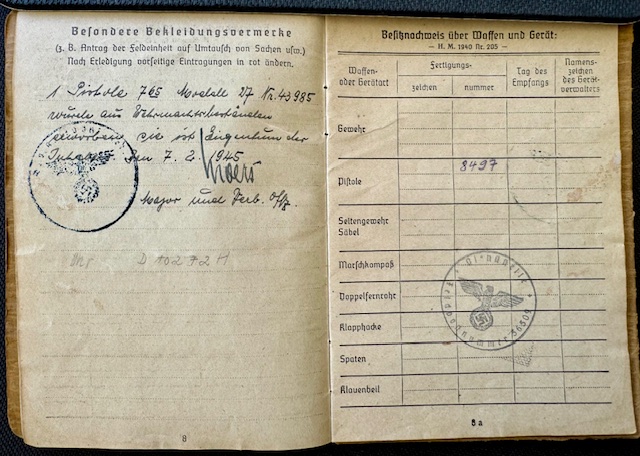 Besondere Bekleidungsvermerke
(z. B. Antrag der Feldeinheit auf Umtausch von Sachen usw.)
Nach Erledigung vorseitige Eintragungen in rot ändern.
1 Pistole 765 Modell 27 Nr. 43985
wurde aus Wehrmachtsbeständen
erworben sie ist Eigentum des
den 7. 2. 1945
Major und Verb. Offz.
D 10272H
8
Besitznachweis über Waffen und Gerät:
— H. M. 1940 Nr. 205 —
Waffen- oder Gerätart
Fertigungs-
zeichen
nummer
Tag des Empfangs
Namens-zeichen des Gerät-verwalters
Gewehr
Pistole
8497
Seitengewehr
Säbel
Marschkompaß
Doppelfernrohr
Klapphacke
Spaten
Klauenbeil
36509
8a